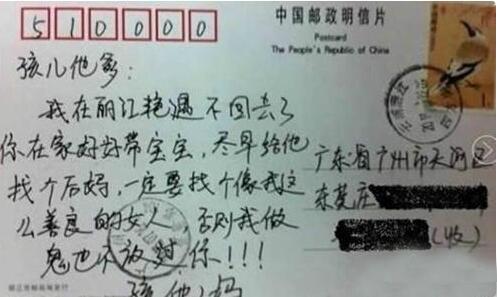 510000
中国邮政明信片
Postcard
The People's Republic of China
孩儿他爹：
我在丽江艳遇不回去了
你在家好好带宝宝，尽早给他
找个后妈，一定要找个像我这
么善良的女人，否则我做
鬼也不放过你！！！
孩他妈
广东省广州市天河区
东莞庄
（收）